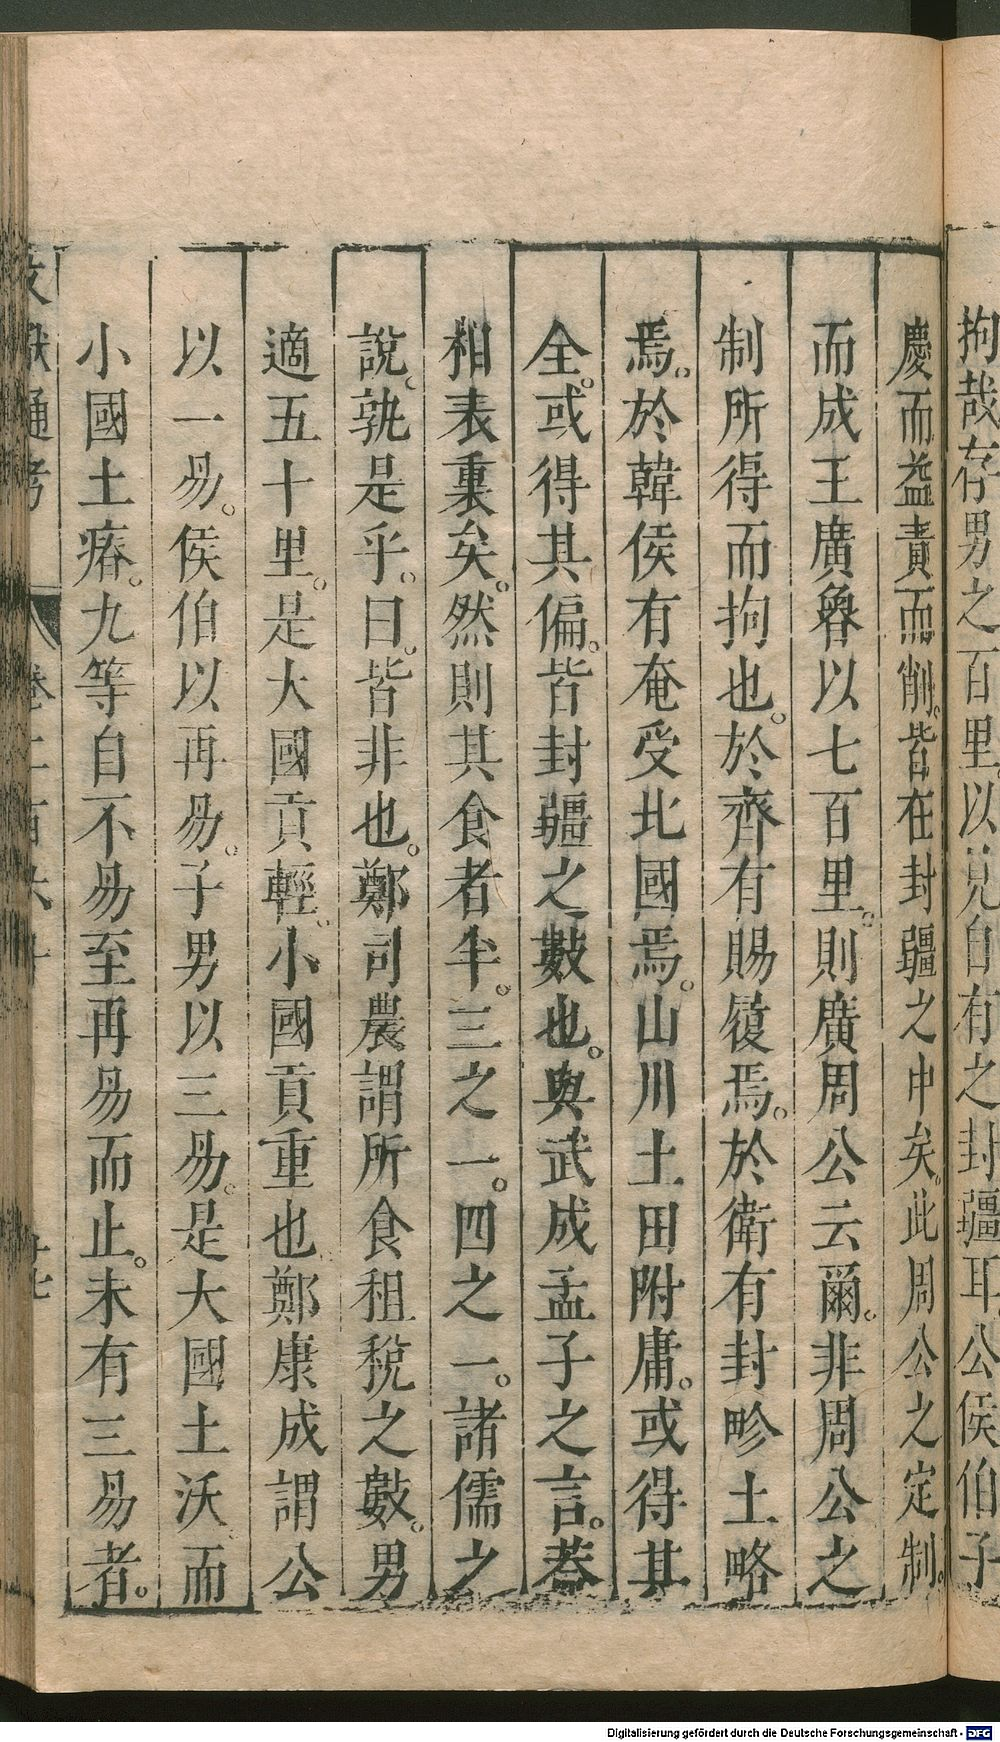 拘哉存男之百里以見自有之封疆耳公侯伯子
慶而益責而削。皆在封疆之中矣。此周公之定制。
而成王廣魯以七百里。則廣周公云爾。非周公之
制所得而拘也。於齊有賜履焉。於衛有封畛土略
焉。於韓侯有奄受北國焉。山川土田附庸。或得其
全。或得其偏。皆封疆之數也。與武成孟子之言。若
相表裏矣。然則其食者半。三之一。四之一。諸儒之
說。孰是乎。曰。皆非也。鄭司農謂所食租稅之數。男
適五十里。是大國貢輕。小國貢重也。鄭康成謂公
以一易。侯伯以再易。子男以三易。是大國土沃。而
小國土瘠。九等自不易至再易而止。未有三易者。
文獻通考 卷二百六十
Digitalisierung gefördert durch die Deutsche Forschungsgemeinschaft - DFG